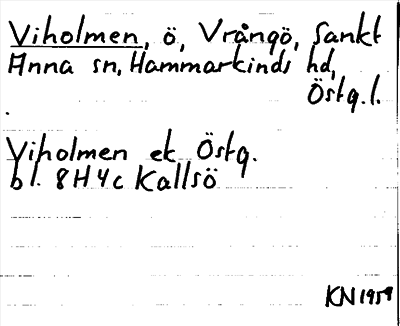 Viholmen, ö, Vrångö, Sankt
Anna sn, Hammarkinds hd,
Östg. l.
Viholmen ek Östg.
bl. 8H4c Kallsö
KN 1959